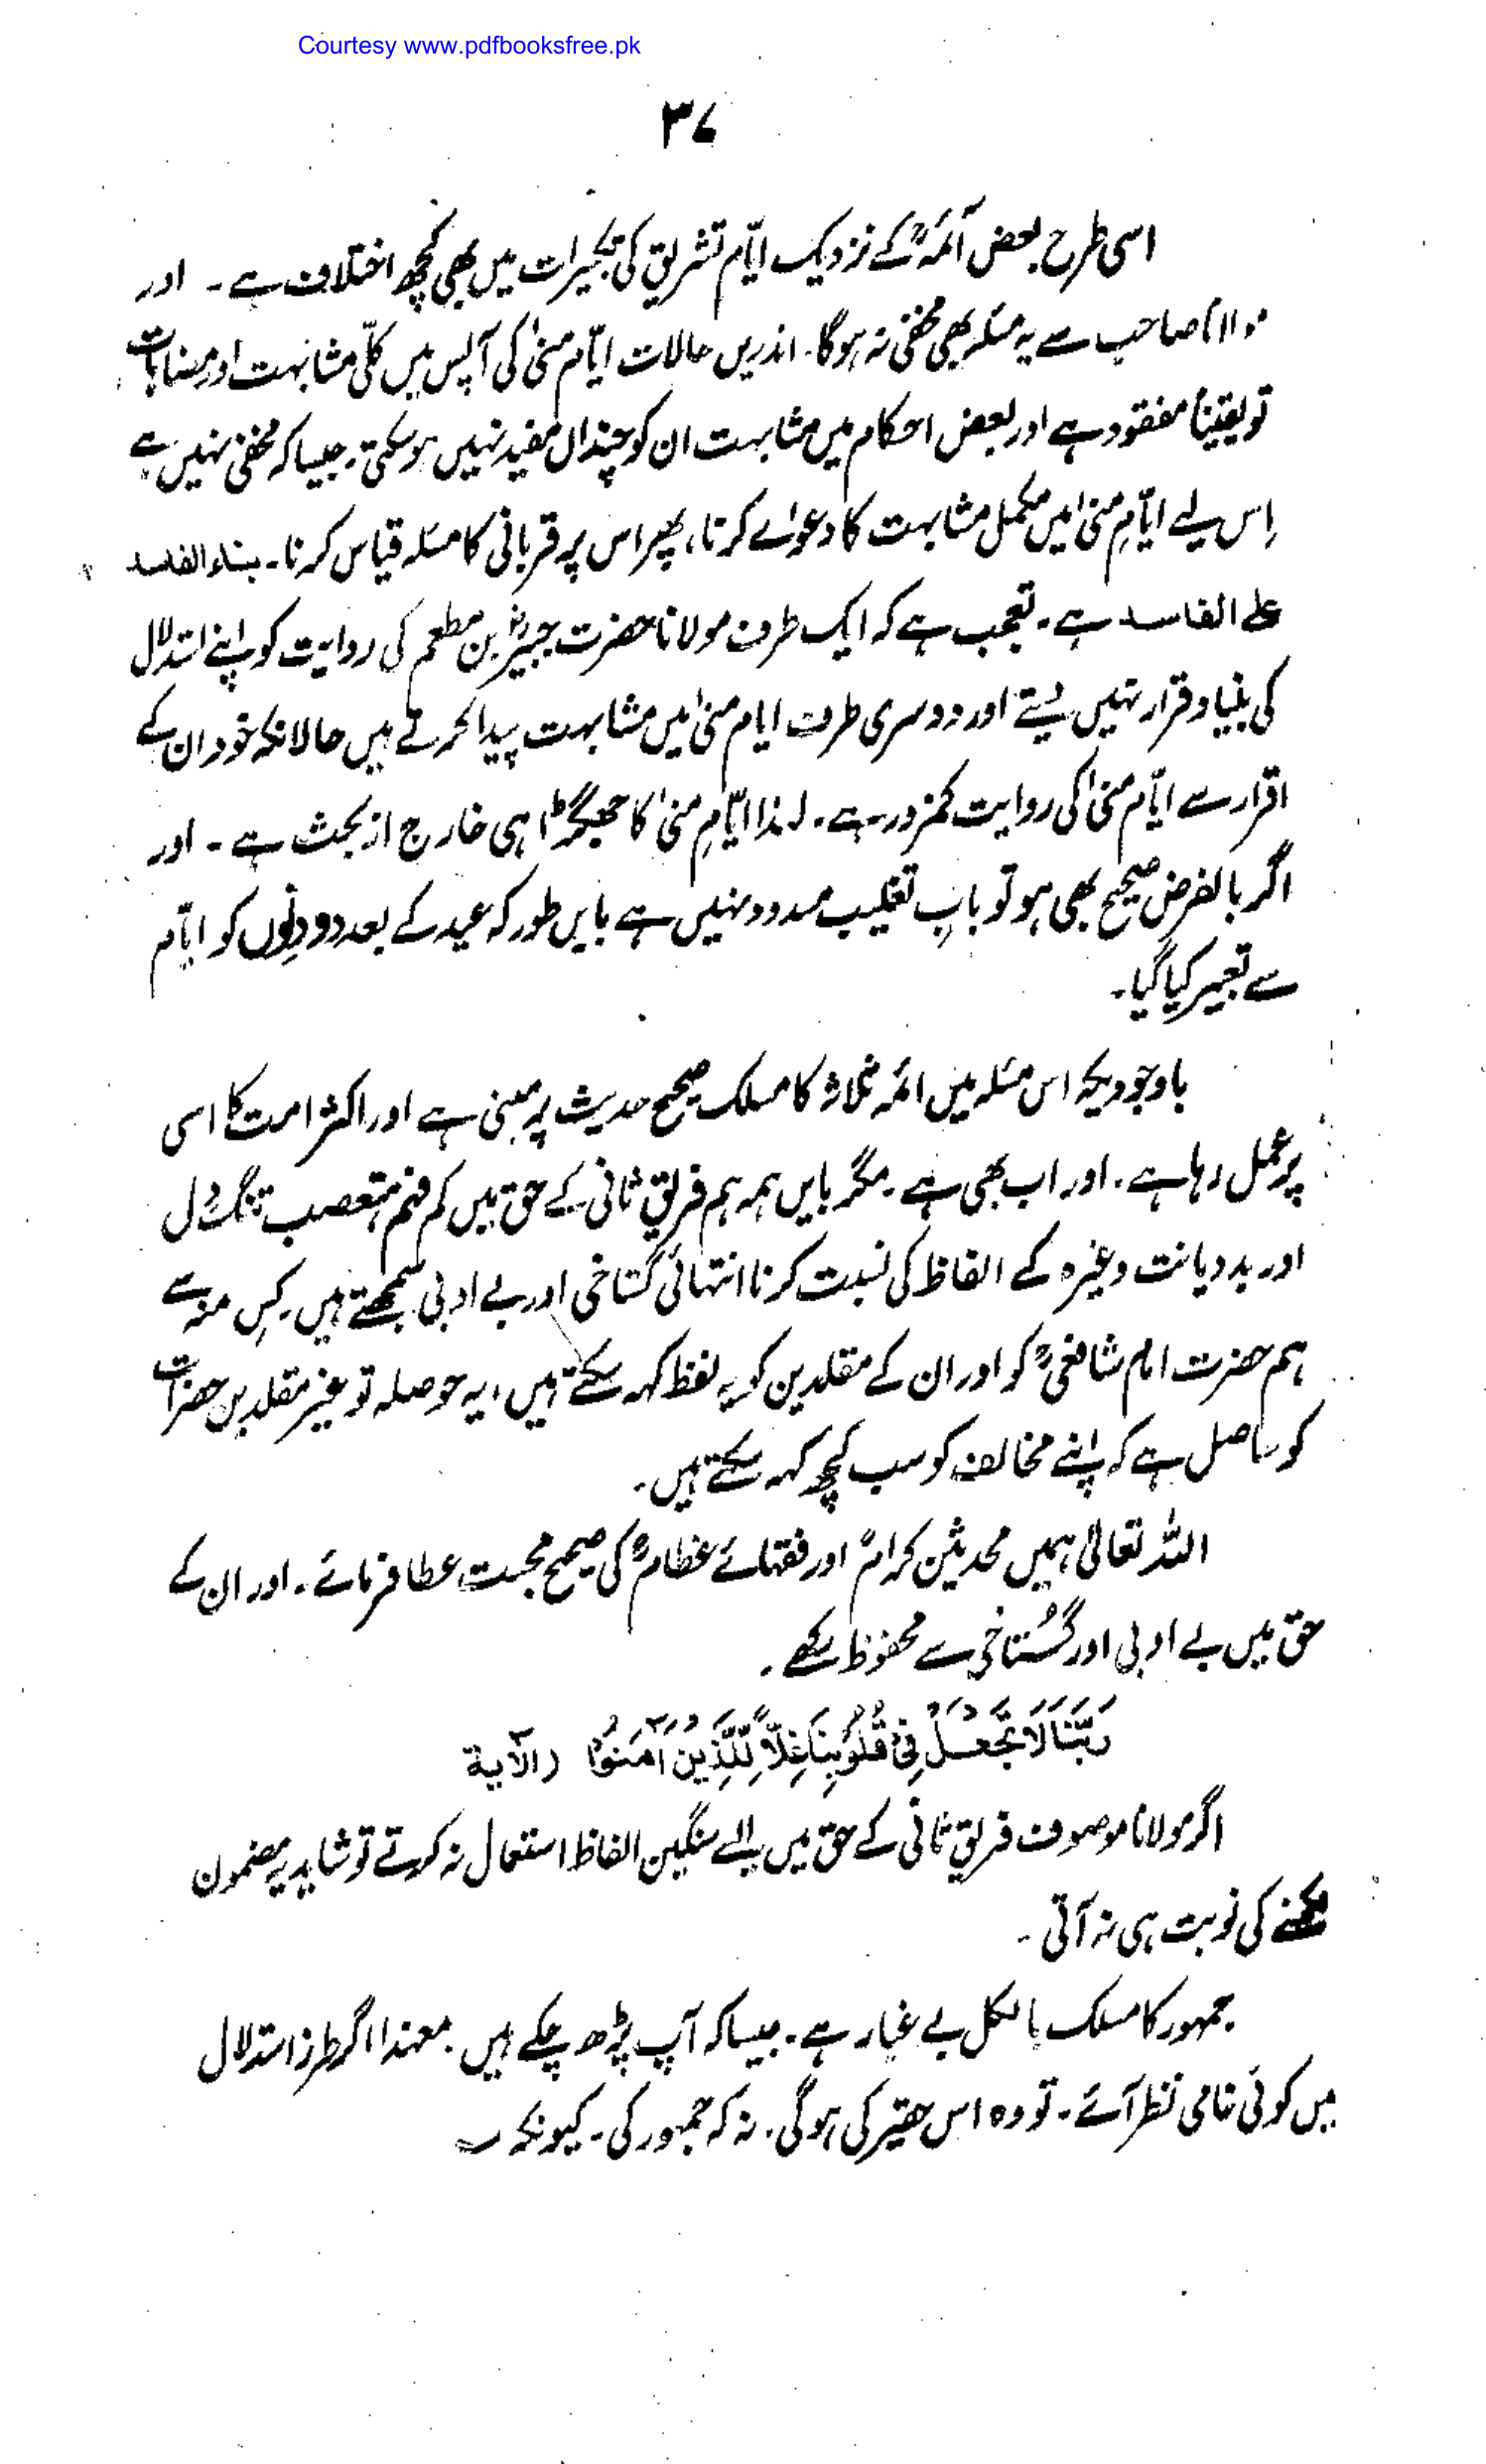 Courtesy www.pdfbooksfree.pk
۳۷
اسی طرح بعض آئمہؒ کے نزدیک ایّام تشریق کی تکبیرات میں بھی کچھ اختلاف ہے۔ اور
مولانا صاحب سے یہ مسئلہ بھی مخفی نہ ہوگا۔ اندریں حالات ایّام منیٰ کی آپس میں کلّی مشابہت اور مناسبت
تو یقیناً مفقود ہے اور بعض احکام میں مشابہت ان کو چنداں مفید نہیں ہو سکتی۔ جیسا کہ مخفی نہیں ہے
اِس لیے ایّامِ منیٰ میں مکمل مشابہت کا دعوٰے کرنا، پھر اس پر قربانی کا مسئلہ قیاس کرنا۔ بناء الفاسد
علی الفاسد ہے۔ تعجب ہے کہ ایک طرف مولانا حضرت جبیرؓ بن مطعم کی روایت کو اپنے استدلال
کی بنیاد قرار نہیں دیتے اور دوسری طرف ایام منیٰ میں مشابہت پیدا کرتے ہیں حالانکہ خود ان کے
اقرار سے ایّام منیٰ کی روایت کمزور ہے۔ لہذا ایّامِ منیٰ کا جھگڑا ہی خارج از بحث ہے۔ اور
اگر بالفرض صحیح بھی ہو تو بابِ تغلیب مسدود نہیں ہے بایں طور کہ عید کے بعد دو دِنوں کو ایّام
سے تعبیر کیا گیا۔
باوجودیکہ اس مسئلہ میں ائمہ ثلاثہ کا مسلک صحیح حدیث پر مبنی ہے اور اکثر امت کا اسی
پر عمل رہا ہے۔ اور اب بھی ہے۔ مگر بایں ہمہ ہم فریق ثانی کے حق میں کم فہم متعصب تنگ دل
اور بددیانت وغیرہ کے الفاظ کی نسبت کرنا انتہائی گستاخی اور بے ادبی سمجھتے ہیں۔ کس منہ سے
ہم حضرت امام شافعیؒ کو اور ان کے مقلدین کو یہ لفظ کہہ سکتے ہیں، یہ حوصلہ تو غیر مقلدین حضرات
کو حاصل ہے کہ اپنے مخالف کو سب کچھ کہہ سکتے ہیں۔
اللہ تعالیٰ ہمیں محدیثن کرامؒ اور فقہائے عظامؒ کی صحیح محبت عطا فرمائے۔ اور ان کے
حق میں بے ادبی اور گُستاخی سے محفوظ رکھے۔
رَبَّنَا لَا تَجْعَلْ فِیْ قُلُوْبِنَا غِلًّا لِّلَّذِیْنَ آمَنُوْا (الآیة
اگر مولانا موصوف فریق ثانی کے حق میں ایسے سنگین الفاظ استعمال نہ کرتے تو شاید یہ مضمون
لکھنے کی نوبت ہی نہ آتی۔
جمہور کا مسلک بالکل بے غبار ہے۔ جیسا کہ آپ پڑھ چکے ہیں۔ معہذا اگر طرز استدلال
میں کوئی خامی نظر آئے۔ تو وہ اس حقیر کی ہو گی۔ نہ کہ جمہور کی۔ کیونکہ ؎